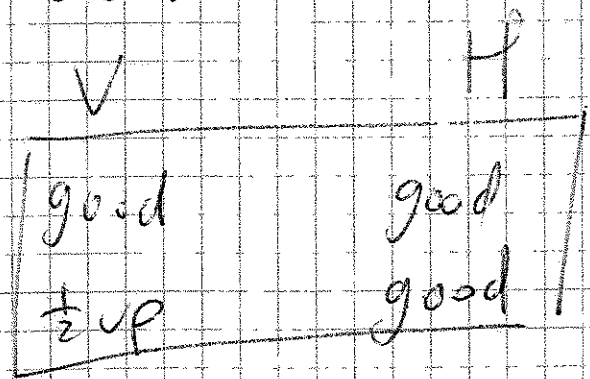 V H
good good
½ up good